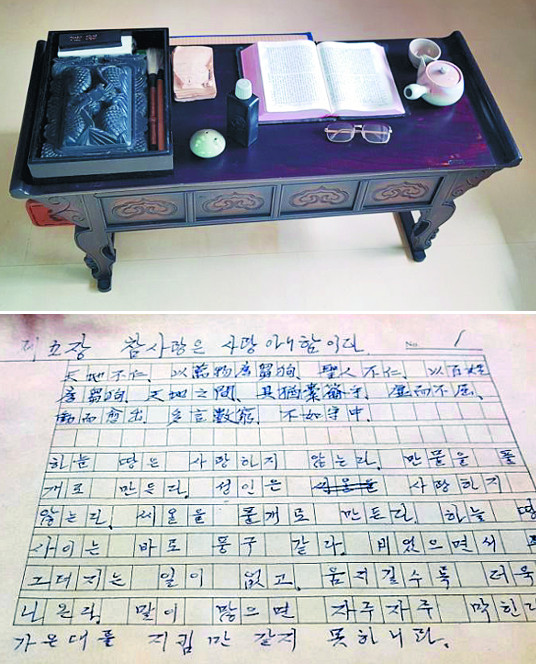 제5장 참사랑은 사랑 아니함이다. No. 1
天地不仁、以萬物爲芻狗、聖人不仁、以百姓
爲芻狗、天地之間、其猶橐籥乎、虛而不屈、
動而愈出、多言數窮、不如守中.
하늘 땅은 사랑하지 않는다. 만물을 풀
개로 만든다. 성인은 사랑하지
않는다. 씨올을 풀개로 만든다. 하늘 땅
사이는 바로 풍구 같다. 비었으면서
그러지는 일이 없고, 움지길수록 더욱
나온다. 말이 많으면 자주자주 막힌다
가온대를 지킴만 같지 못하니라.